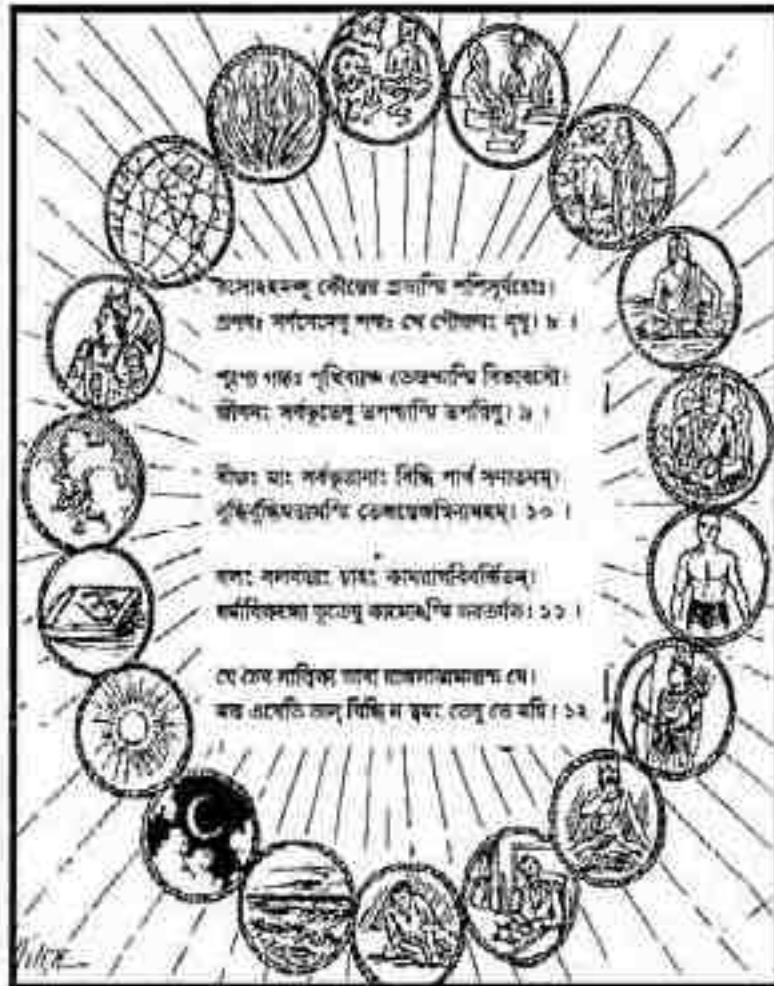 রসোঽহমপ্সু কৌন্তেয় প্রভাস্মি শশিসূর্যয়োঃ।
প্রণবঃ সর্ববেদেষু শব্দঃ খে পৌরুষং নৃষু। ৮ ।
পুণ্যো গন্ধঃ পৃথিব্যাঞ্চ তেজশ্চাস্মি বিভাবসৌ।
জীবনং সর্বভূতেষু তপশ্চাস্মি তপস্বিষু। ৯ ।
বীজং মাং সর্বভূতানাং বিদ্ধি পার্থ সনাতনম্।
বুদ্ধির্বুদ্ধিমতামস্মি তেজস্তেজস্বিনামহম্। ১০ ।
বলং বলবতাং চাহং কামরাগবিবর্জিতম্।
ধর্মাবিরুদ্ধো ভূতেষু কামোঽস্মি ভরতর্ষভ। ১১ ।
যে চৈব সাত্ত্বিকা ভাবা রাজসাস্তামসাশ্চ যে।
মত্ত এবেতি তান্ বিদ্ধি ন ত্বহং তেষু তে ময়ি। ১২